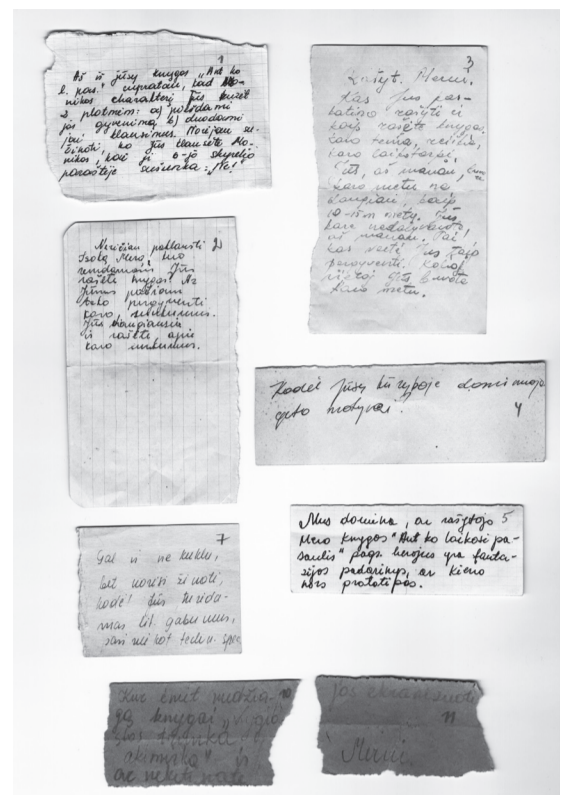 1
Aš iš jūsų knygos „Ant ko
l. pas." supratau, kad Mo-
nikos charakterį Jūs
2. plotmėm: a) piešdami
jos gyvenimą, b) duodami
jai klausimus. Norėjau su-
žinoti, ko Jūs klausėte Mo-
nikos, kad ji 6-jo skyrelio
paraštėje sušunka: „Ne!
3
Rašyt. Meras.
Kas Jus pas-
katino rašyti ir
kaip rašėte knygą
karo tema, reiškia,
karo laikotarpį.
Jūs, aš manau,
karo metu ne
daugiau, kaip
10-15 metų. Jūs
kare nedalyvavote
aš manau. Tai
kas vertė Jus taip
pergyventi, kokoj
vietoj Jūs buvote
karo metu.
2
Norėčiau paklausti
Icoką Merą, kuo
remdamasis Jūs
rašėte knygas? Ar
Jums pačiam
teko pergyventi
karo sunkumus.
Jūs daugiausia
ir rašėte apie
karo sunkumus.
Kodėl Jūsų kūryboje dominuoja
geto motyvai?
4
Mus domina, ar rašytojo 5
Mero knygos "Ant ko laikosi pa-
saulis" pagr. herojus yra fanta-
zijos padarinys, ar kieno
nors prototipas.
7
Gal ir nekuklu,
bet norisi žinoti,
kodėl Jūs turėda-
mas lit. gabumus,
techn. spec
Kur ėmėt medžia- 10
gą knygai
akimirka" ir
ar
jos ekranizuoti
11
Merui.